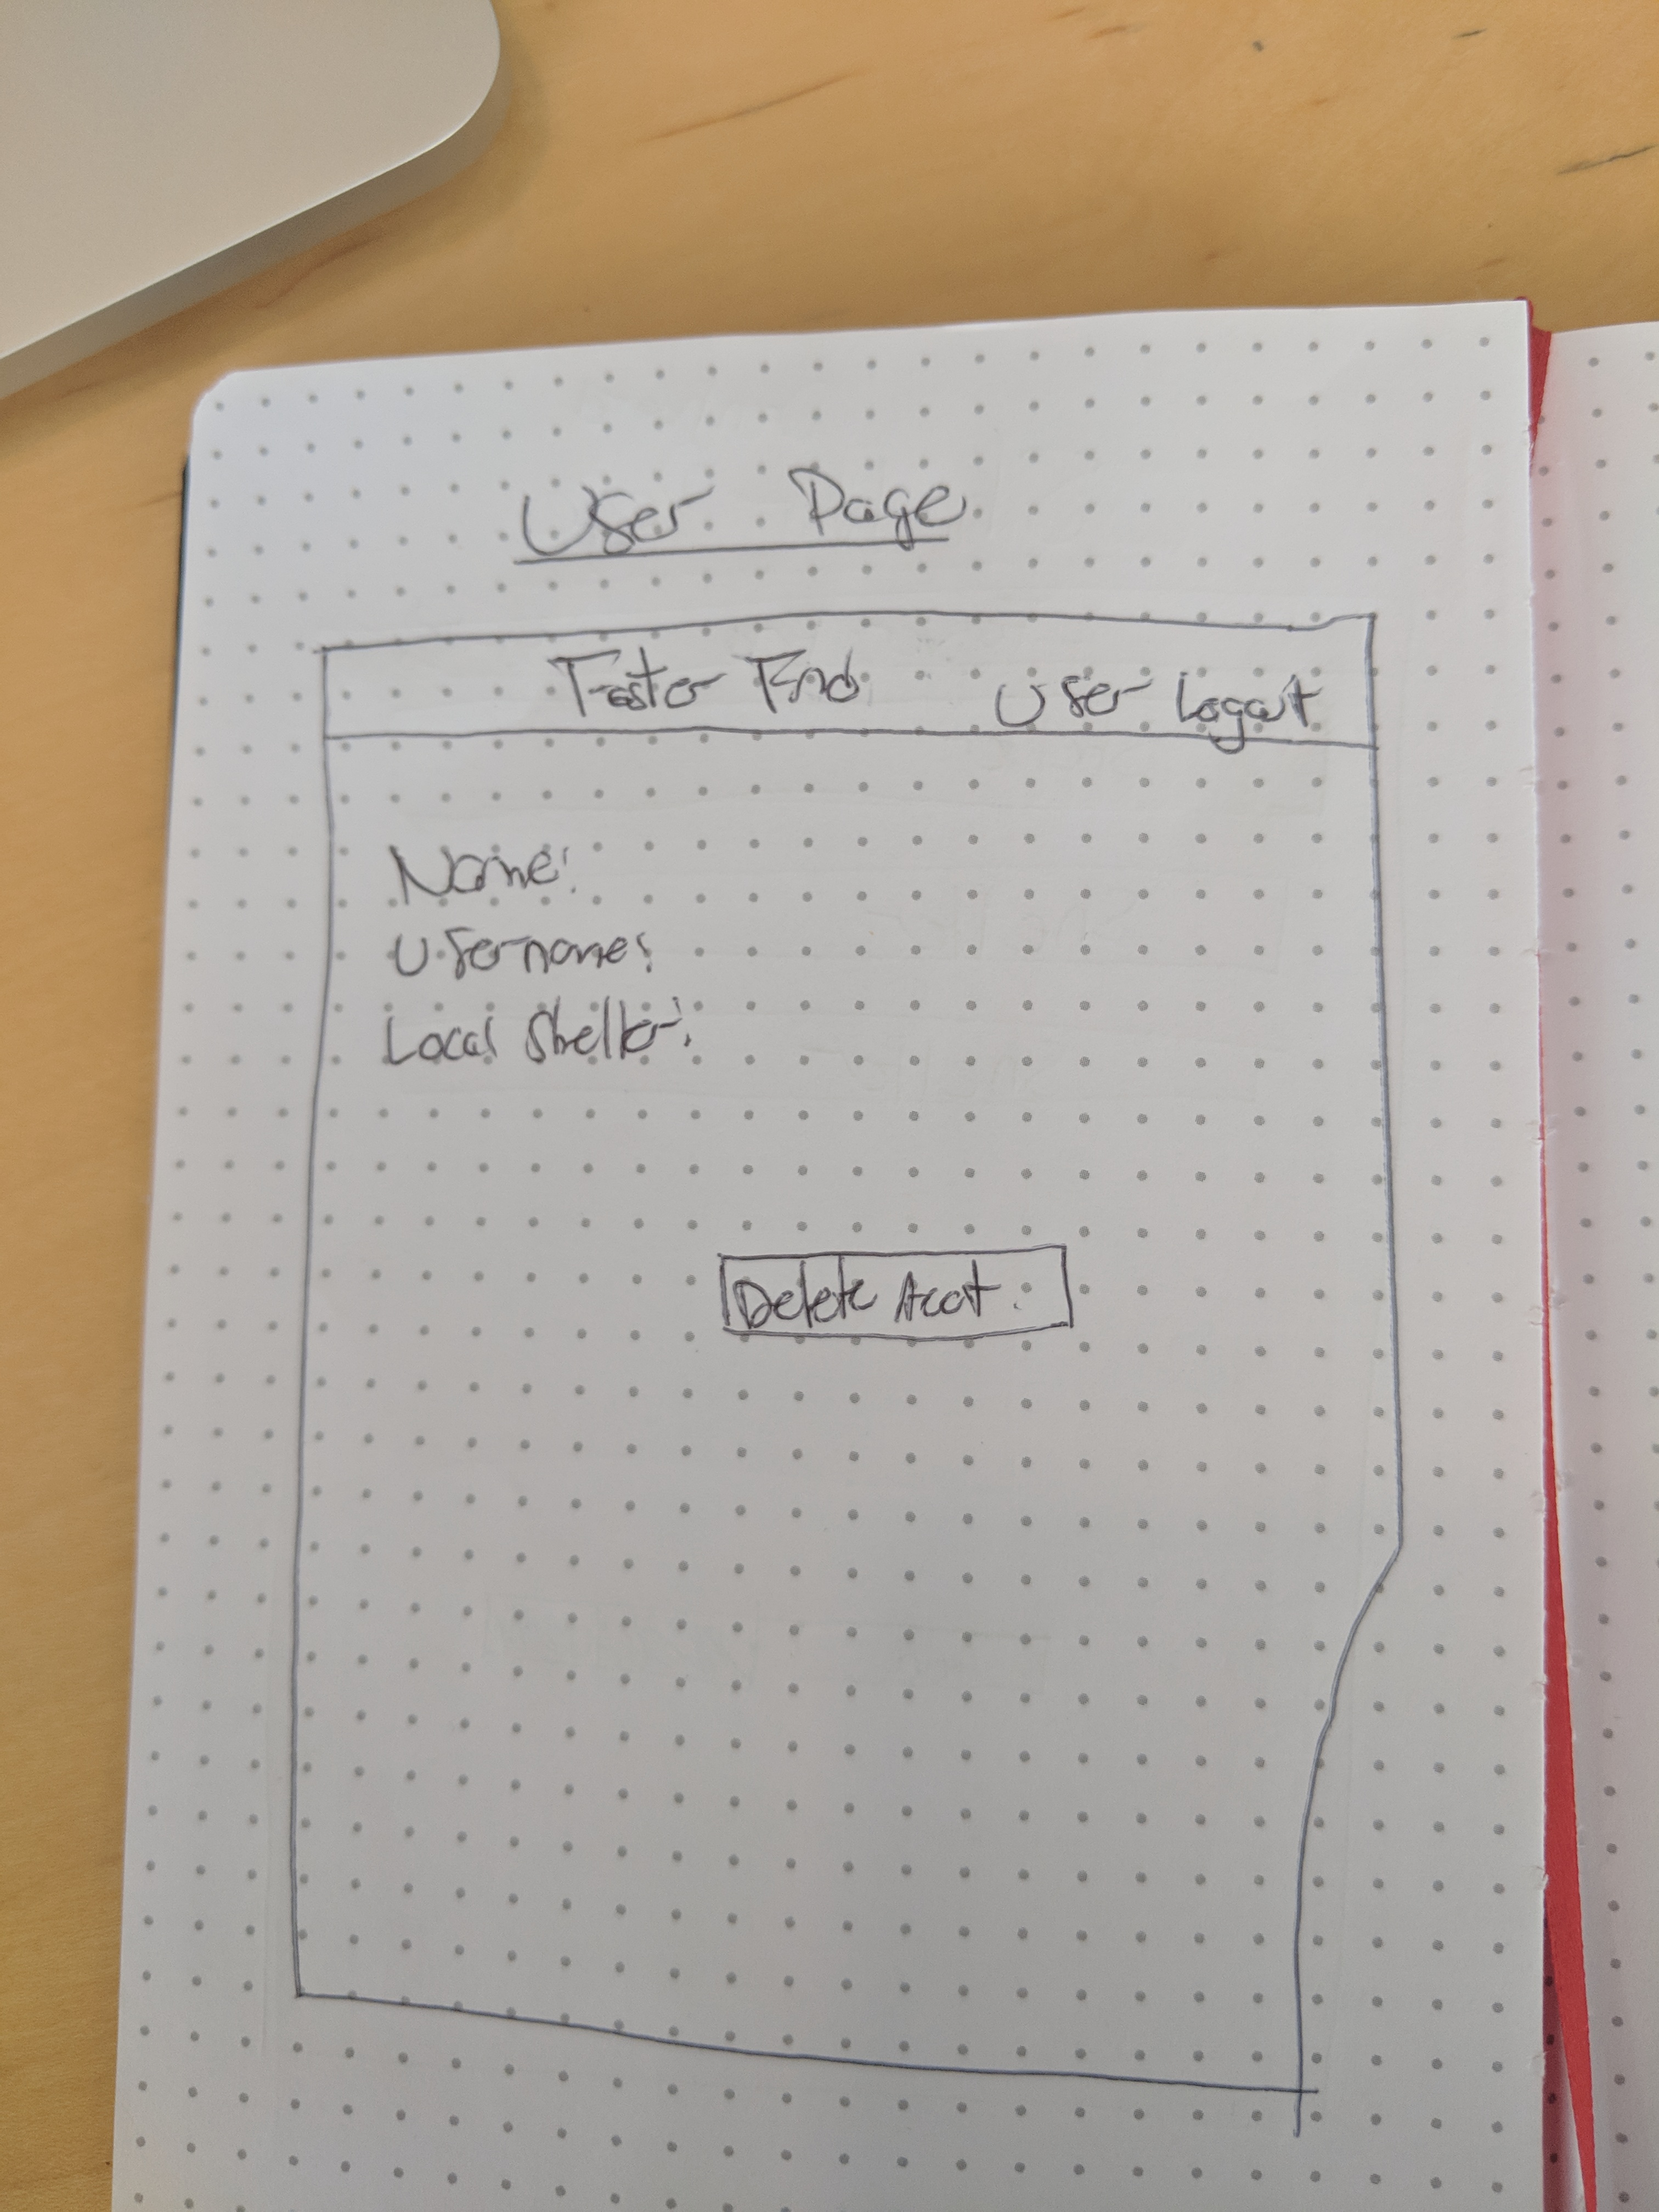 User Page
Foster Find User Logout
Name:
Username:
Local Shelter:
Delete Acct.